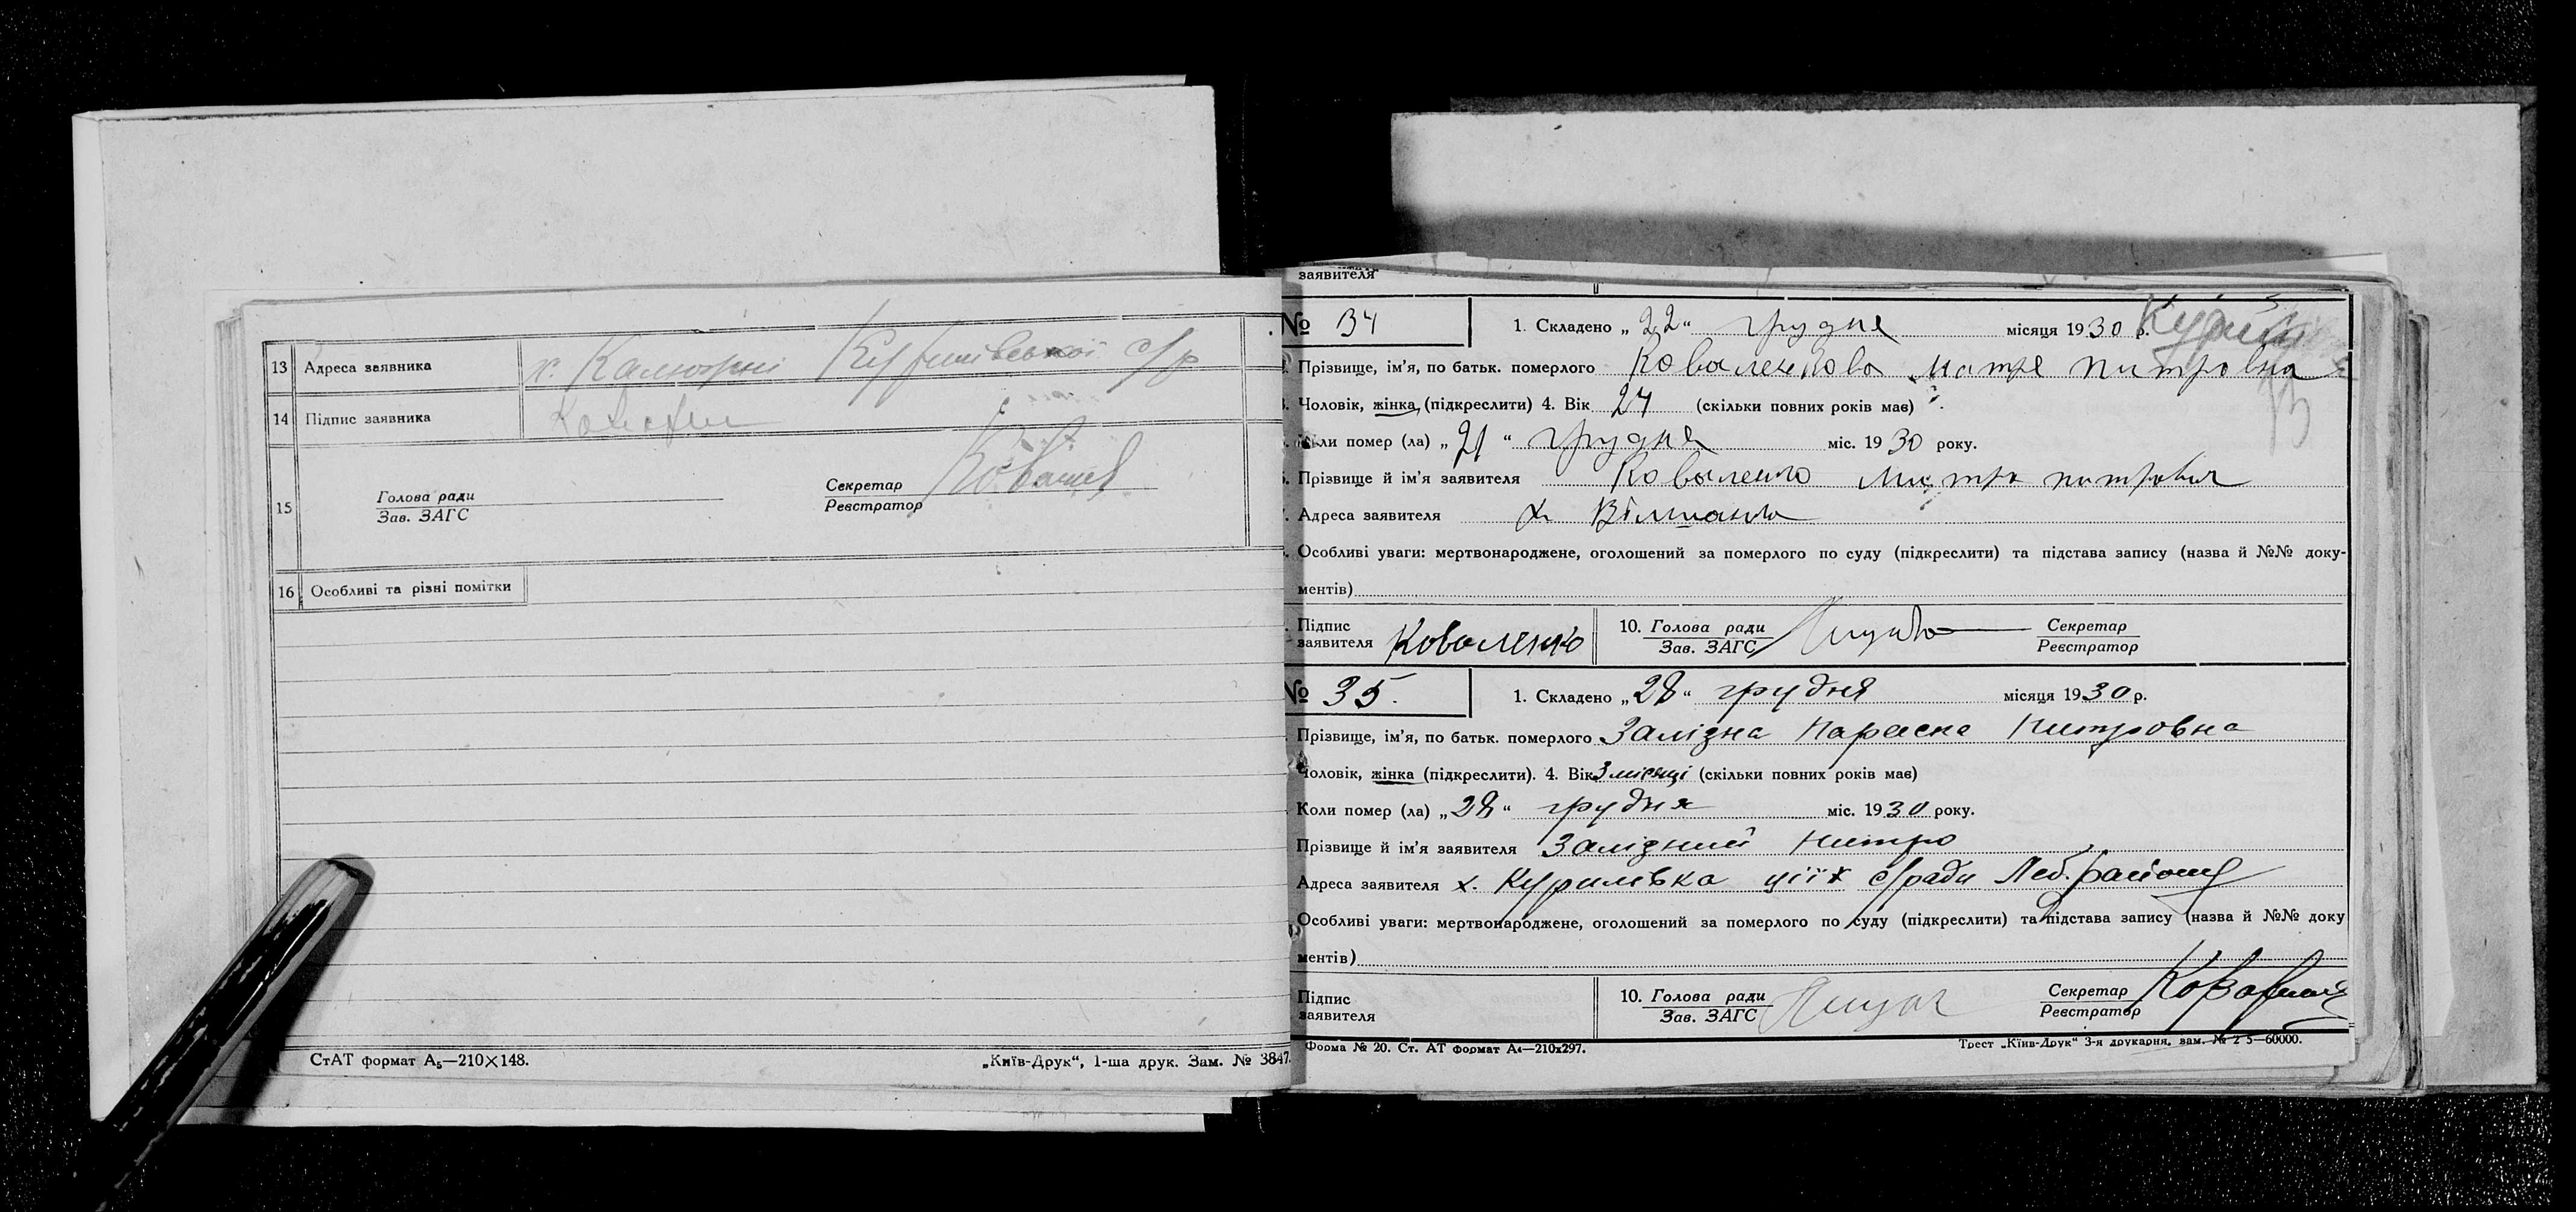 13 Адреса заявника х. Калюжні Куришівської с/р
14 Підпис заявника
15 Голова ради
Зав. ЗАГС
Секретар
Реєстратор
16 Особливі та різні помітки
СтАТ формат А₅—210×148. „Київ-Друк“, 1-ша друк. Зам. № 3847.
заявителя
№ 34 1. Складено „22“ грудня місяця 1930 р.
Прізвище, ім'я, по батьк. померлого Коваленкова Митровна
Чоловік, жінка, (підкреслити) 4. Вік 24 (скільки повних років має)
Коли помер (ла) „21“ грудня міс. 1930 року.
Прізвище й ім'я заявителя Коваленко
Адреса заявителя х.
Особливі уваги: мертвонароджене, оголошений за померлого по суду (підкреслити) та підстава запису (назва й №№ доку-
ментів)
Підпис
заявителя Коваленко
10. Голова ради
Зав. ЗАГС
Секретар
Реєстратор
№ 35. 1. Складено „28“ грудня місяця 1930 р.
Прізвище, ім'я, по батьк. померлого Залізна Параска Митровна
Чоловік, жінка (підкреслити). 4. Вік 3 місяці (скільки повних років має)
Коли помер (ла) „28“ грудня міс. 1930 року.
Прізвище й ім'я заявителя Залізний Митро
Адреса заявителя х. Курилівка цієї с/ради Леб. району
Особливі уваги: мертвонароджене, оголошений за померлого по суду (підкреслити) та підстава запису (назва й №№ доку
ментів)
Підпис
заявителя
10. Голова ради
Зав. ЗАГС
Секретар
Реєстратор
Форма № 20. Ст. АТ формат А₄—210х297. Трест „Київ-Друк“ 3-я друкарня, зам. № 2 5—60000.